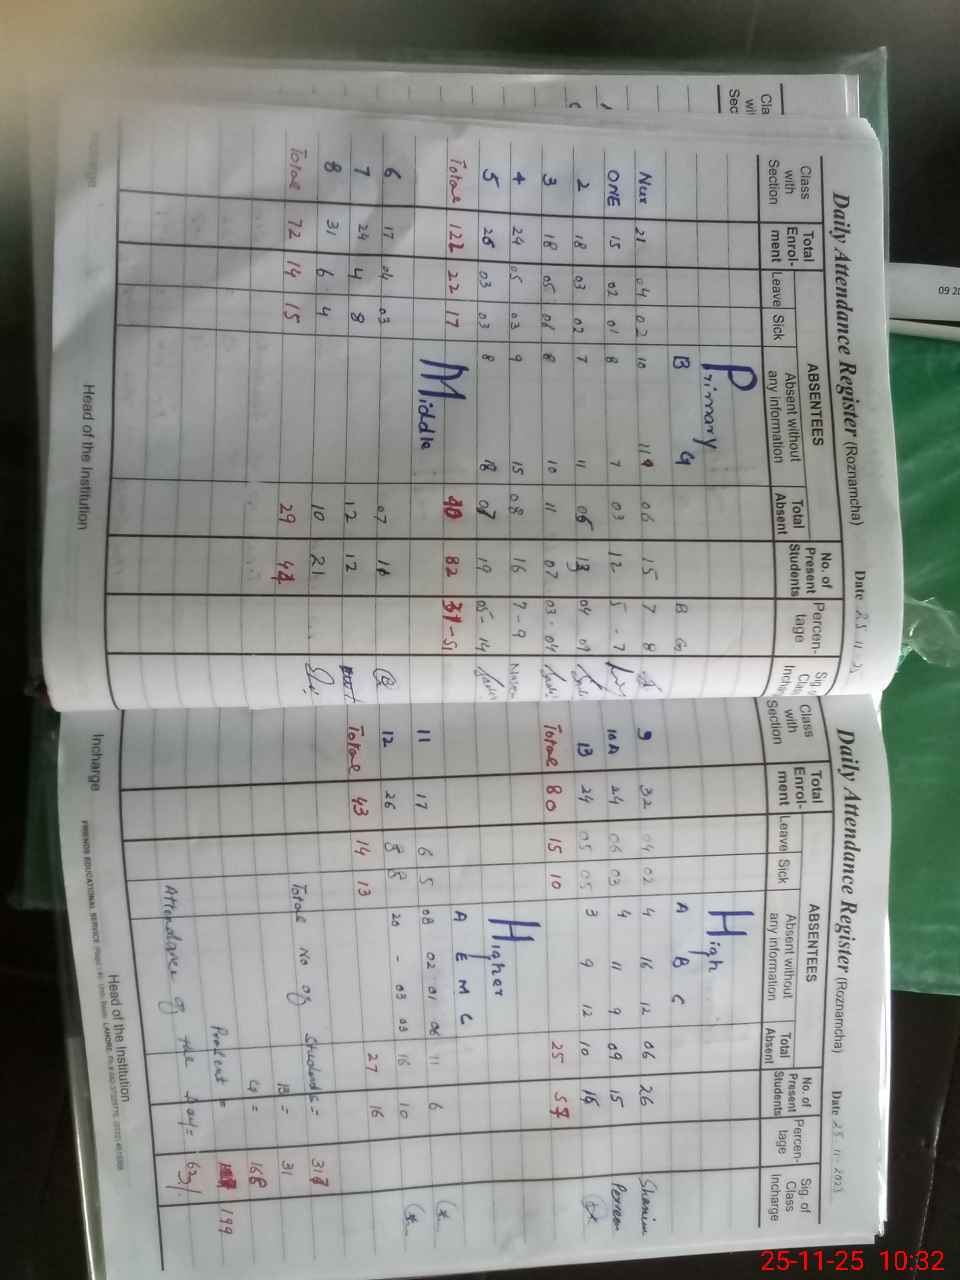 Daily Attendance Register (Roznamcha) Date 25-11-25
Class with Section Total Enrol-ment ABSENTEES Leave Sick Absent without any information Total Absent No. of Present Students Percen-tage
Primary
B G B G
Nur 21 04 02 10 11 06 15 7 8
ONE 15 02 01 8 7 03 12 5 - 7
2 18 03 02 7 11 05 13 04 09
3 18 05 06 8 10 11 07 03 - 04
4 24 05 03 9 15 08 16 7 - 9
5 26 03 03 8 18 07 19 05 - 14
Total 122 22 17 40 82 31-51
Middle
6 17 04 03 07 10
7 24 4 8 12 12
8 31 6 4 10 21
Total 72 14 15 29
Head of the Institution
Daily Attendance Register (Roznamcha) Date 25-11-2025
Class with Section Total Enrol-ment ABSENTEES Leave Sick Absent without any information Total Absent No. of Present Students Percen-tage Sig. of Class Incharge
High
A B C
9 32 04 02 4 16 12 06 26 Shamim
10A 24 06 03 4 11 9 09 15
13 24 05 05 3 9 12 10
Total 80 15 10 25
Higher
A E M C
11 17 6 5 08 02 01 06 11 6
12 26 8 8 20 - 03 03 16 10
Total 43 14 13 27 16
Total No of Students = 317
B = 31
G = 168
Present = 199
Attendance of the day = 63%
Incharge Head of the Institution
25-11-25 10:32